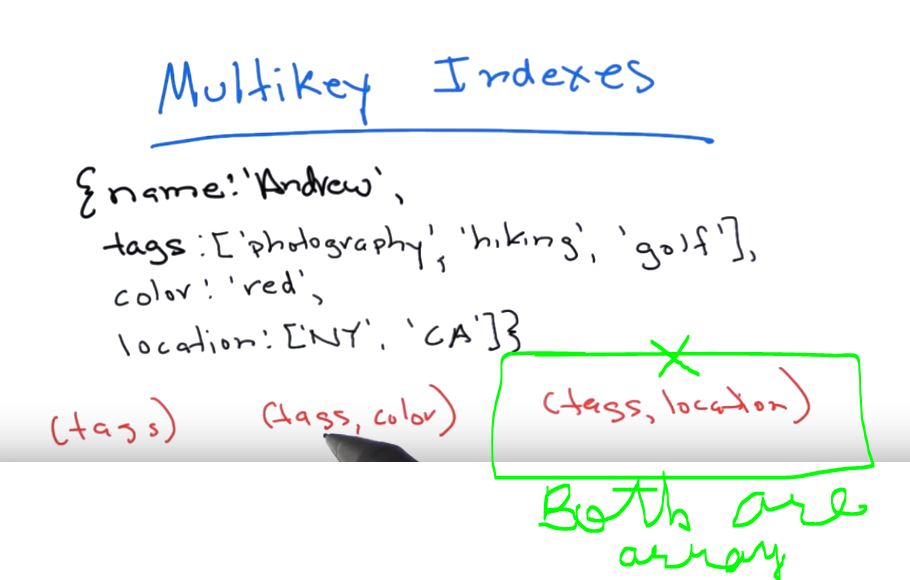 Multikey Indexes
{name:'Andrew',
tags:['photography', 'hiking', 'golf'],
color:'red',
location:['NY', 'CA']}
(tags) (tags, color) (tags, location)
Both are
array